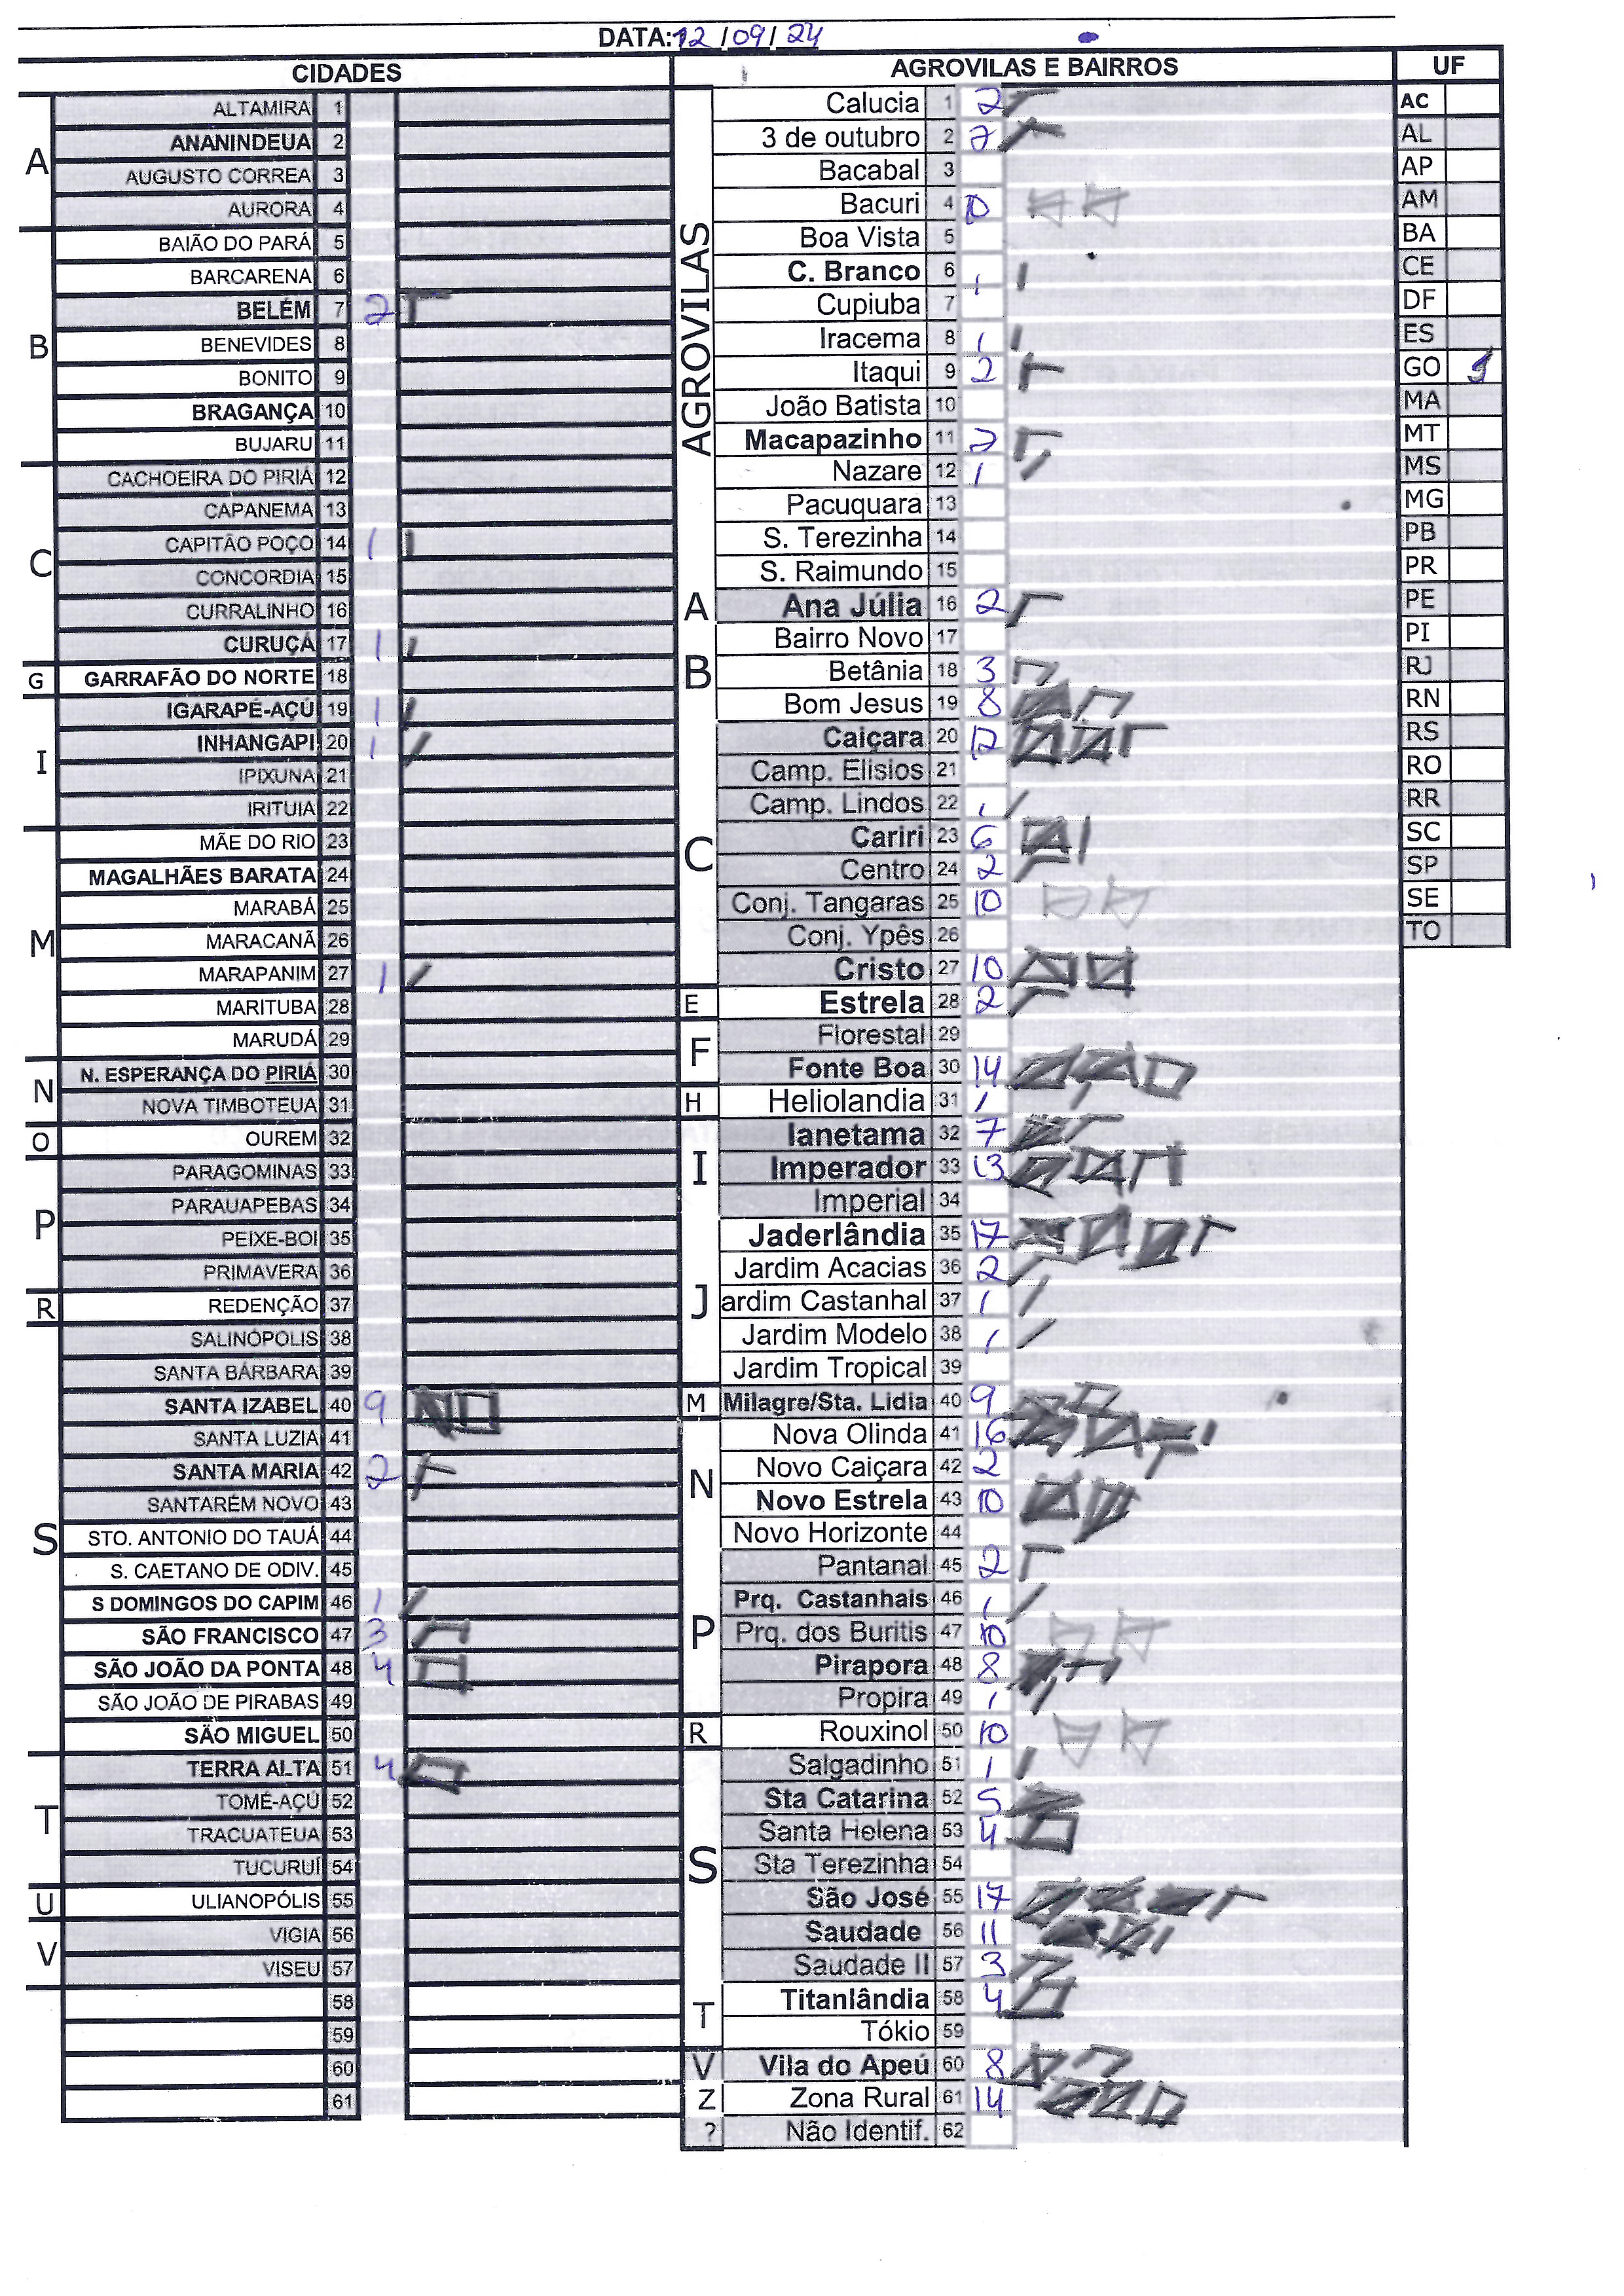 DATA: 12/09/24
CIDADES
A
ALTAMIRA 1
ANANINDEUA 2
AUGUSTO CORREA 3
AURORA 4
B
BAIÃO DO PARÁ 5
BARCARENA 6
BELÉM 7 2
BENEVIDES 8
BONITO 9
BRAGANÇA 10
BUJARU 11
C
CACHOEIRA DO PIRIÁ 12
CAPANEMA 13
CAPITÃO POÇO 14 1
CONCORDIA 15
CURRALINHO 16
CURUÇÁ 17 1
G
GARRAFÃO DO NORTE 18
I
IGARAPÉ-AÇÚ 19 1
INHANGAPI 20 1
IPIXUNA 21
IRITUIA 22
M
MÃE DO RIO 23
MAGALHÃES BARATA 24
MARABÁ 25
MARACANÃ 26
MARAPANIM 27 1
MARITUBA 28
MARUDÁ 29
N
N. ESPERANÇA DO PIRIÁ 30
NOVA TIMBOTEUA 31
O
OUREM 32
P
PARAGOMINAS 33
PARAUAPEBAS 34
PEIXE-BOI 35
PRIMAVERA 36
R
REDENÇÃO 37
S
SALINÓPOLIS 38
SANTA BÁRBARA 39
SANTA IZABEL 40 9
SANTA LUZIA 41
SANTA MARIA 42 2
SANTARÉM NOVO 43
STO. ANTONIO DO TAUÁ 44
S. CAETANO DE ODIV. 45
S DOMINGOS DO CAPIM 46 1
SÃO FRANCISCO 47 3
SÃO JOÃO DA PONTA 48 4
SÃO JOÃO DE PIRABAS 49
SÃO MIGUEL 50
T
TERRA ALTA 51 4
TOMÉ-AÇÚ 52
TRACUATEUA 53
TUCURUÍ 54
U
ULIANOPÓLIS 55
V
VIGIA 56
VISEU 57
58
59
60
61
AGROVILAS E BAIRROS
AGROVILAS
Calucia 1 2
3 de outubro 2 2
Bacabal 3
Bacuri 4 10
Boa Vista 5
C. Branco 6 1
Cupiuba 7
Iracema 8 1
Itaqui 9 2
João Batista 10
Macapazinho 11 2
Nazare 12 1
Pacuquara 13
S. Terezinha 14
S. Raimundo 15
A
Ana Júlia 16 2
B
Bairro Novo 17
Betânia 18 3
Bom Jesus 19 8
C
Caiçara 20 12
Camp. Elisios 21
Camp. Lindos 22 1
Cariri 23 6
Centro 24 2
Conj. Tangaras 25 10
Conj. Ypês 26
Cristo 27 10
E
Estrela 28 2
F
Florestal 29
Fonte Boa 30 14
H
Heliolandia 31 1
I
Ianetama 32 7
Imperador 33 13
Imperial 34
J
Jaderlândia 35 17
Jardim Acacias 36 2
ardim Castanhal 37 1
Jardim Modelo 38 1
Jardim Tropical 39
M
Milagre/Sta. Lidia 40 9
N
Nova Olinda 41 16
Novo Caiçara 42 2
Novo Estrela 43 10
Novo Horizonte 44
P
Pantanal 45 2
Prq. Castanhais 46 1
Prq. dos Buritis 47 10
Pirapora 48 8
Propira 49 1
R
Rouxinol 50 10
S
Salgadinho 51 1
Sta Catarina 52 5
Santa Helena 53 4
Sta Terezinha 54
São José 55 17
Saudade 56 11
Saudade II 57 3
T
Titanlândia 58 4
Tókio 59
V
Vila do Apeú 60 8
Z
Zona Rural 61 14
?
Não Identif. 62
UF
AC
AL
AP
AM
BA
CE
DF
ES
GO
MA
MT
MS
MG
PB
PR
PE
PI
RJ
RN
RS
RO
RR
SC
SP
SE
TO